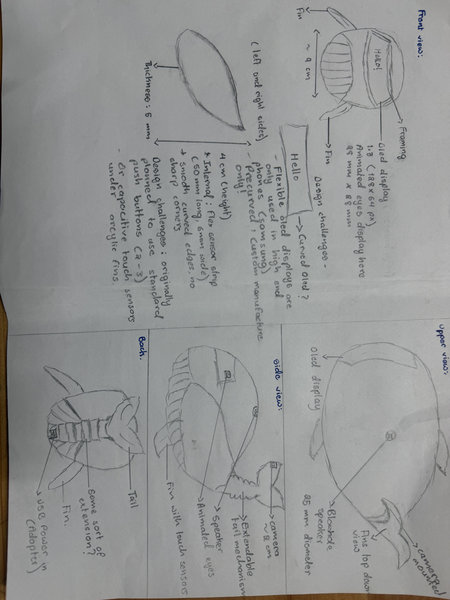 Front view:
Fin
~ 9 cm
Hello!
Framing
Oled display
1.3 (128 x 64 px)
Animated eyes display here
35 mm x 23 mm
Fin
Design challenges -
Curved oled?
Hello
- Flexible oled displays are
only used in high end
phones (samsung)
precurved, custom manufacture
only!
(left and right sides)
Thickness: 5 mm
4 cm (height)
* Internal: Flex sensor strip
(50mm long, 6mm wide)
→ smooth curved edges. no
sharp corners
Design challenges: originally
planned to use standard
push buttons (2-3)
- Or capacitive touch sensors
under acrylic fins
Upper view:
Oled display
Blowhole
speaker
25 mm diameter
Fins top down
view
camera
mounted
side view:
camera
~ 2 cm
Extendable
tail mechanism
Speaker
Animated eyes
Fin with touch sensors
Back:
Tail
Some sort of
extension?
Fin.
USC power in
(Adapter)